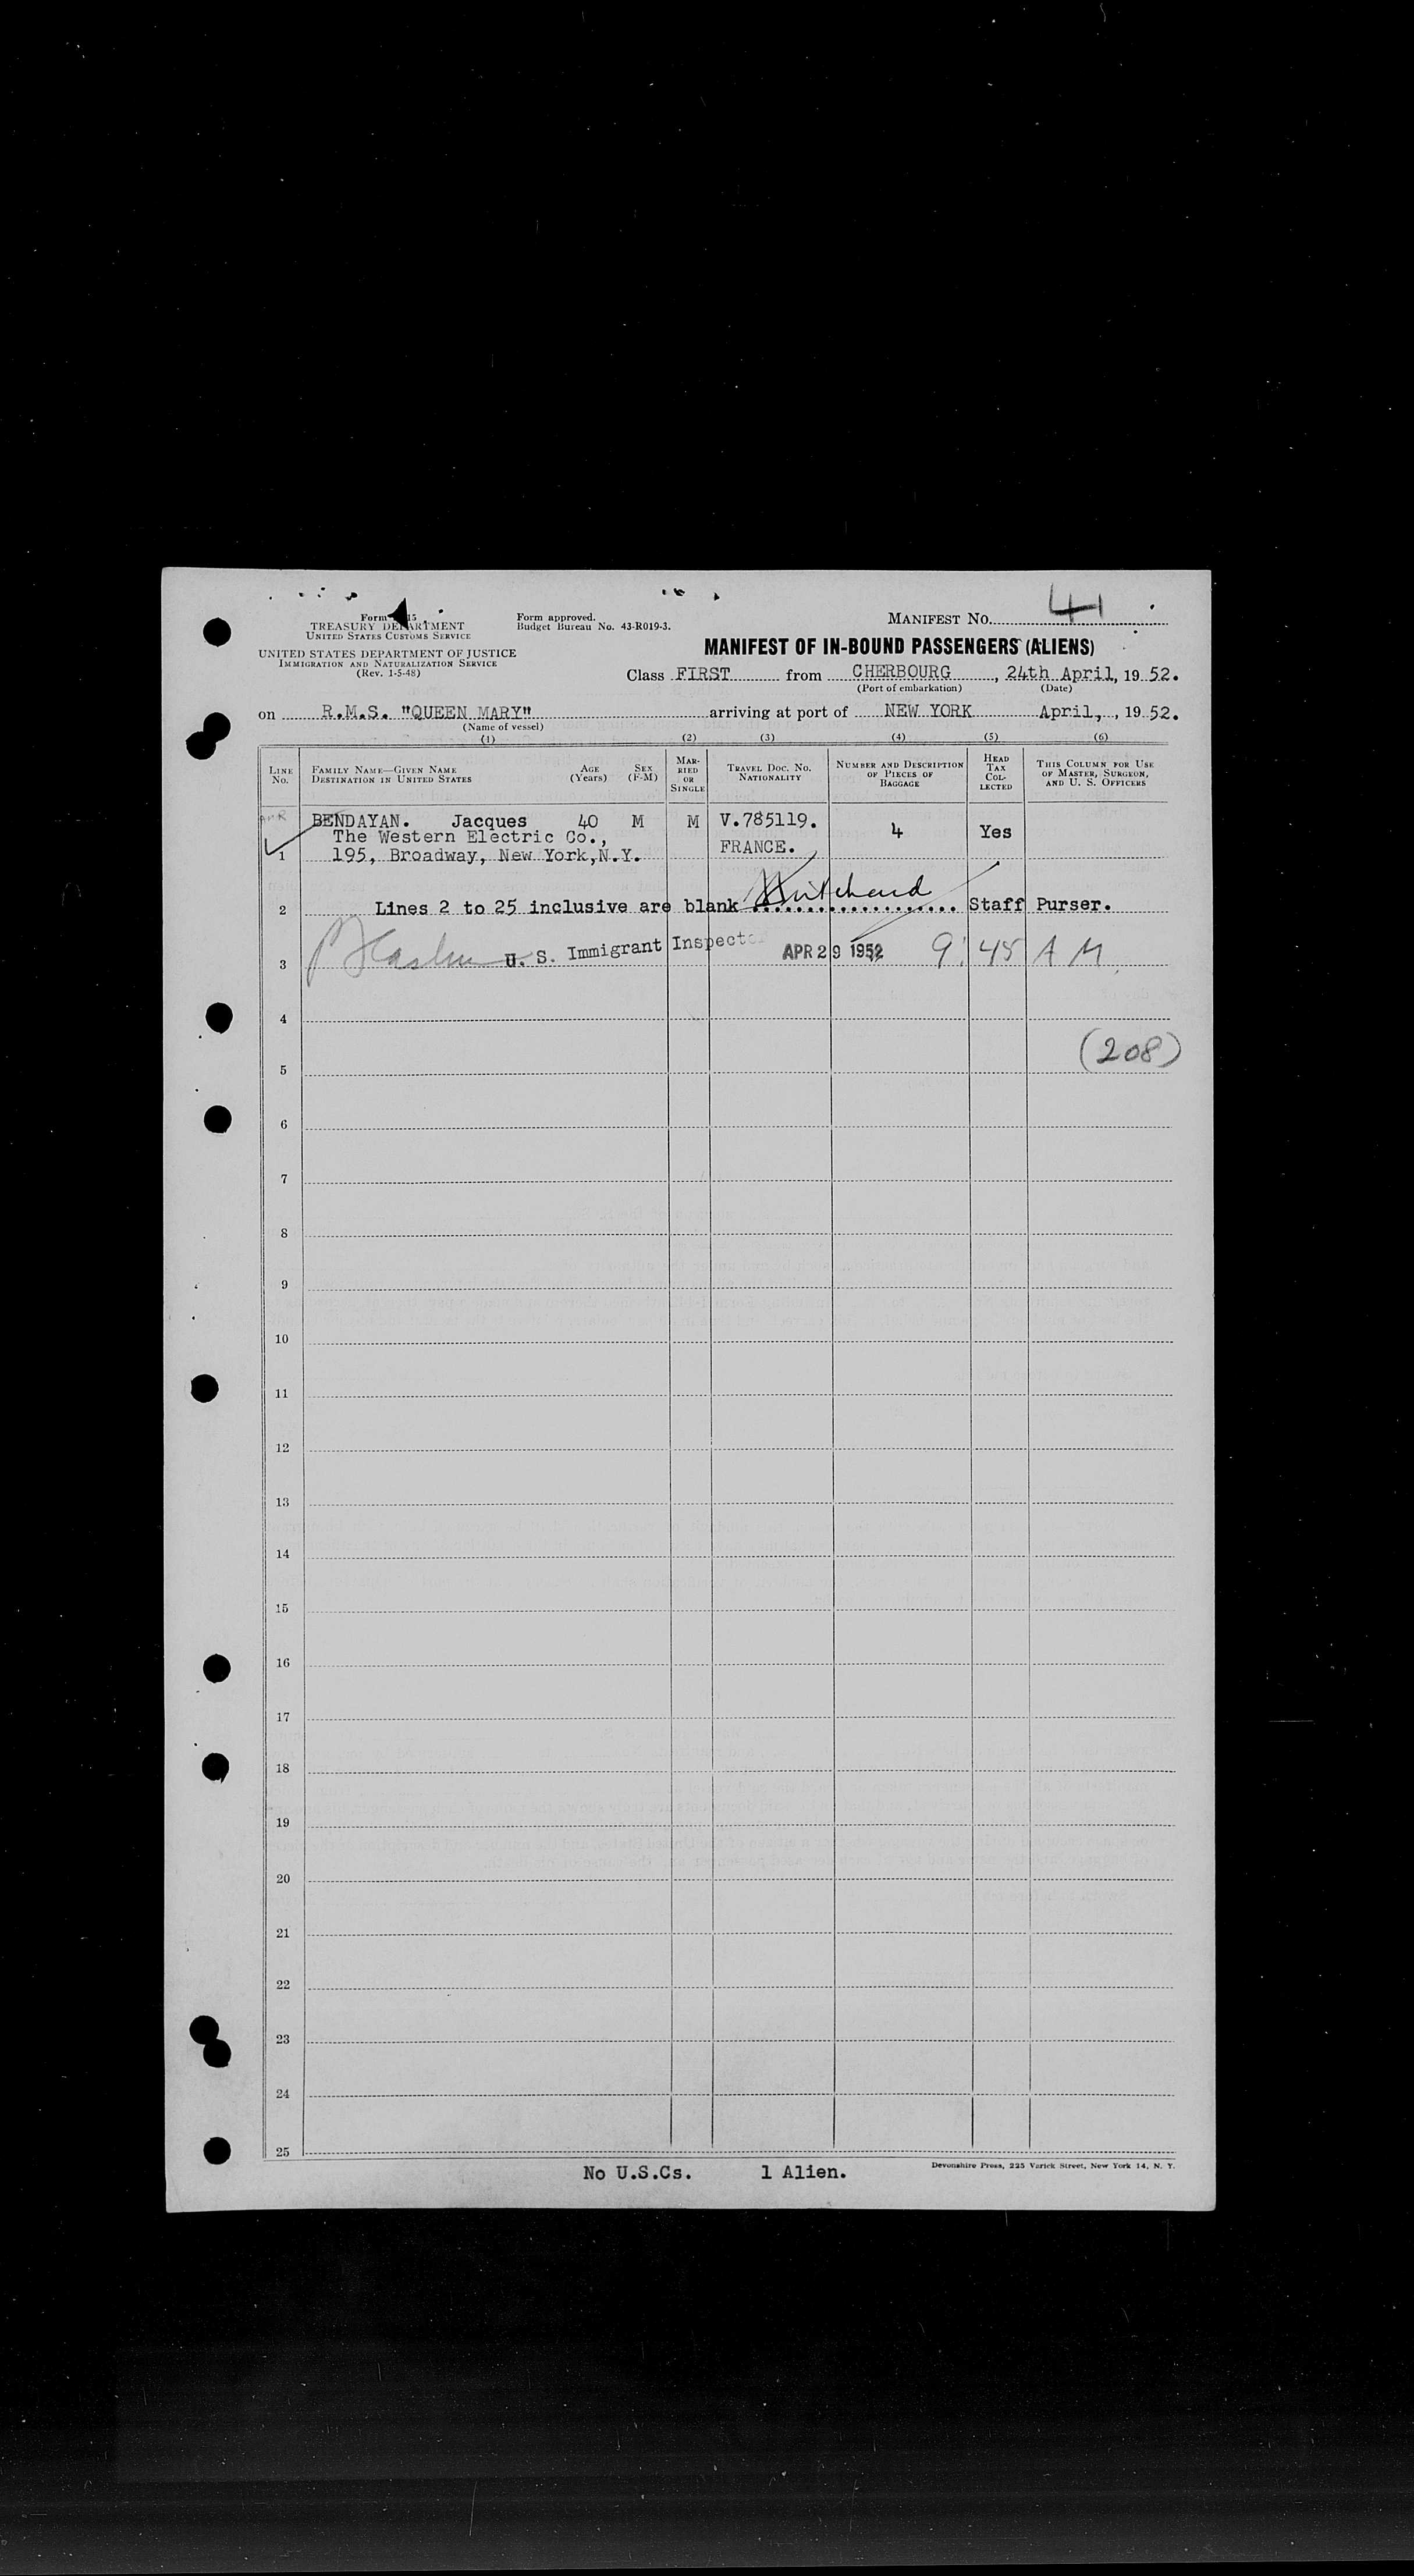 Form
TREASURY DEPARTMENT
UNITED STATES CUSTOMS SERVICE
UNITED STATES DEPARTMENT OF JUSTICE
IMMIGRATION AND NATURALIZATION SERVICE
(Rev. 1-5-48)
Form approved.
Budget Bureau No. 43-R019-3.
MANIFEST NO. 41
MANIFEST OF IN-BOUND PASSENGERS (ALIENS)
Class FIRST from CHERBOURG, 24th April, 19 52.
(Port of embarkation) (Date)
on R.M.S. "QUEEN MARY" arriving at port of NEW YORK April, , 19 52.
(Name of vessel)
(1) (2) (3) (4) (5) (6)
LINE NO. FAMILY NAME—GIVEN NAME DESTINATION IN UNITED STATES AGE (Years) SEX (F-M) MARRIED OR SINGLE TRAVEL DOC. NO. NATIONALITY NUMBER AND DESCRIPTION OF PIECES OF BAGGAGE HEAD TAX COLLECTED THIS COLUMN FOR USE OF MASTER, SURGEON, AND U. S. OFFICERS
BENDAYAN. Jacques 40 M M V.785119. 4 Yes
The Western Electric Co.,
1 195, Broadway, New York,N.Y. FRANCE.
2 Lines 2 to 25 inclusive are blank Pritchard Staff Purser.
3 U. S. Immigrant Inspector APR 29 1952 9:45 AM
4
(208)
5
6
7
8
9
10
11
12
13
14
15
16
17
18
19
20
21
22
23
24
25
No U.S.Cs. 1 Alien.
Devonshire Press, 225 Varick Street, New York 14, N. Y.